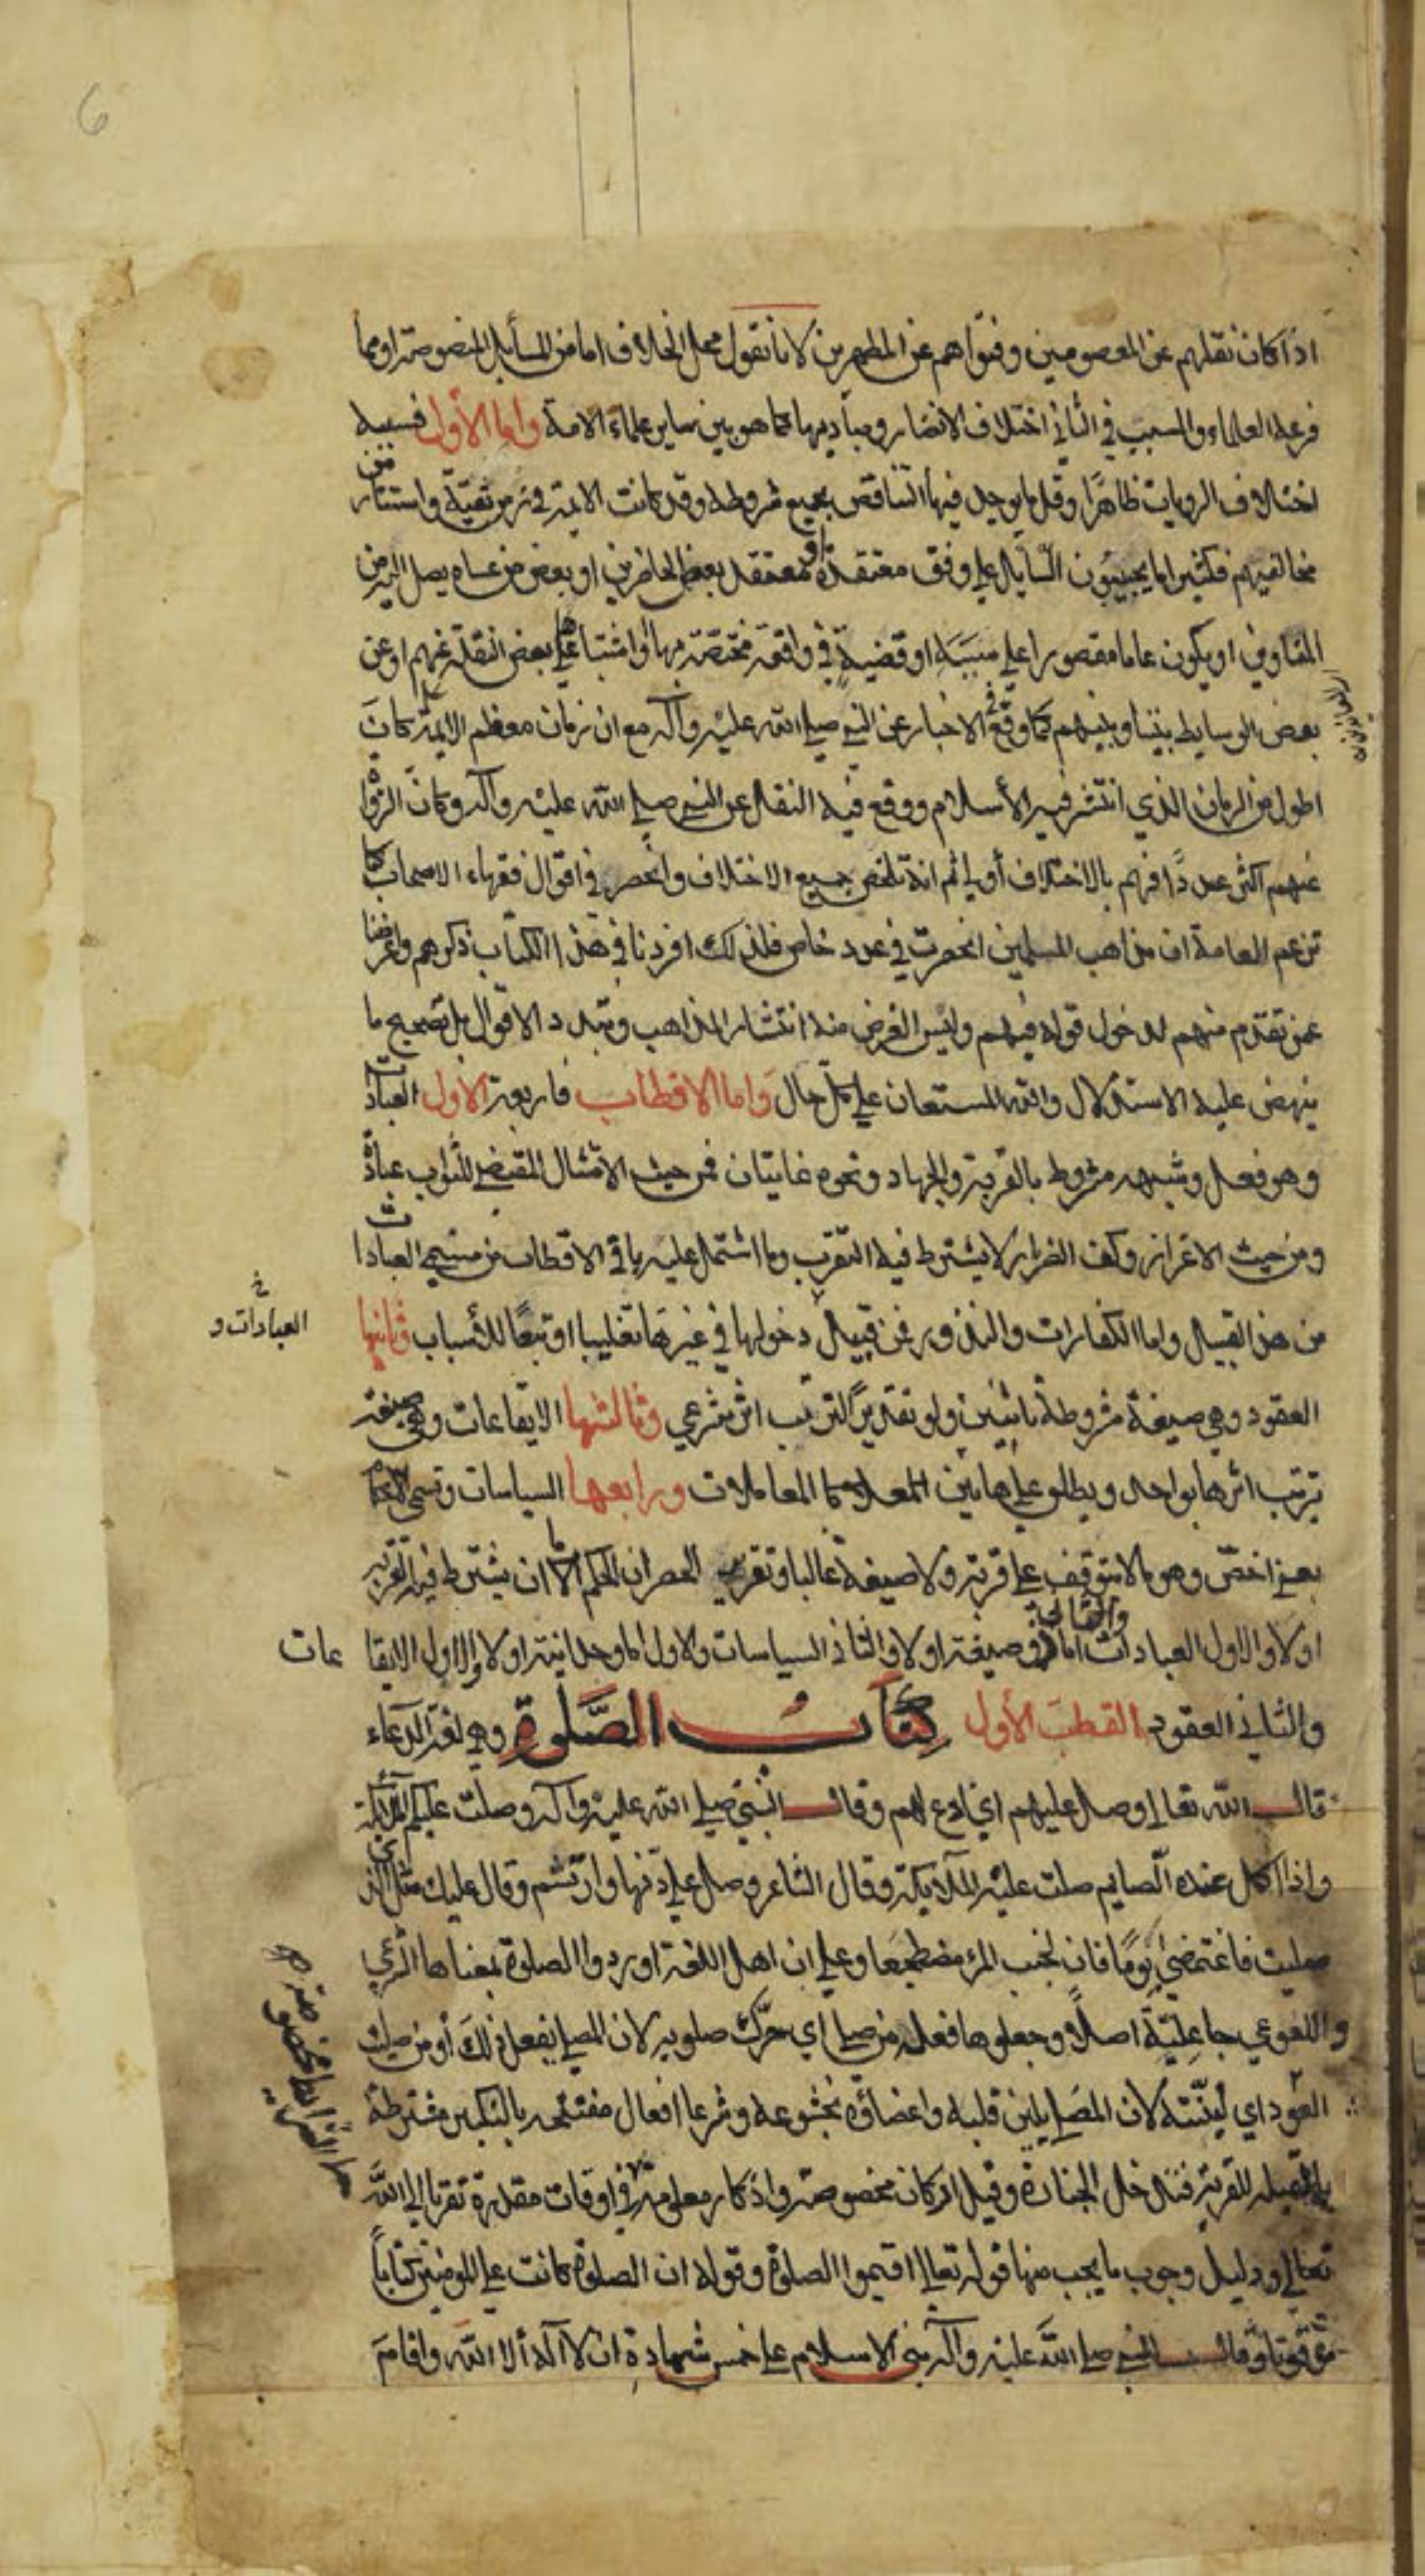 6
اذا كان نقلهم عن المعصومين وفتواهم عن المطهرين لانا نقول محل الخلاف اما من المسايل المنصوصة او مما
فرعه العلماء والسبب في الثاني اختلاف الانضار ومباديها كما هو بين ساير علماء الامة واما الأول فسببه
اختلاف الروايات ظاهرا وقل ما يوجد فيها التناقض بجميع شروطه وقد كانت الايمة في زمن تقية واستتار من
مخالفيهم فكثيرا ما يجيبون السايل على وفق معتقده او معتقد بعض الحاضرين او بعض من عساه يصل اليه من
المناوين او يكون عاما مقصورا على سببه او قضية في واقعة مختصة بها او اشتباه على بعض النقلة عنهم او عن
بعض الوسايط بيننا وبينهم كما وقع في الاخبار عن النبي صلى الله عليه وآله مع ان زمان معظم الايمة كان
اطول من الزمان الذي انتشر فيه الأسلام ووقع فيه النقل عن النبي صلى الله عليه وآله وكان الرواة
عنهم اكثر عددا فهم بالاختلاف أولى ثم انه تلخص جميع الاختلاف وانحصر في اقوال فقهاء الاصحاب كما
تزعم العامة ان مذاهب المسلمين انحصرت في عدد خاص فلذلك افردنا في هذا الكتاب ذكرهم واعرضنا
عمن تقدم منهم لدخول قوله فيهم وليس الغرض منه انتشار المذاهب وتبدد الاقوال بل تصحيح ما
ينهض عليه الاستدلال والله المستعان على كل حال واما الاقطاب فاربعة الأول العبادات
وهو فعل وشبهه مشروط بالقربة والجهاد ونحوه غايتان فمن حيث الامتثال المقتضي للثواب عبادة
ومن حيث الاعزاز وكف الضرار لا يشترط فيه التقرب وما اشتمل عليه باقي الاقطاب من مسمى العبادات
من هذا القبيل واما الكفارات والنذور فمن قبيل دخولها في غيرها تغليبا او تبعا للأسباب وثانيها
العبادات و خ
العقود وهي صيغة مشروطة باثنين ولو تقديرا لترتب اثر شرعي وثالثها الايقاعات وهي صيغة
يترتب اثرها بواحد ويطلق على هاتين المعاملات ورابعها السياسات وتسمى الاحكام
بمعنى اخص وهو ما لا يتوقف على قربة ولا صيغة غالبا وتقريب الحصر ان الحكم اما ان يشترط فيه القربة
اولا والاول العبادات والثاني اما ذو صيغة اولا والثاني السياسات والاول اما وحدانية اولا والاول الايقا عات
والثاني العقود القطب الأول كتاب الصلوة وهي لغة الدعاء
قال الله تعالى وصل عليهم اي ادع لهم وقال النبي صلى الله عليه وآله وصلت عليكم الملائكة
واذا اكل عنده الصايم صلت عليه الملايكة وقال الشاعر وصل على دنها وارتشم وقال عليك مثل الذي
صليت فاغتمضي يوما فان لجنب المرء مضطجعا وعلى ان اهل اللغة اوردوا الصلوة بمعناها الشرعي
واللغوي جاعلية اصلا وجعلوها فعله من صلى اي حرك صلويه لان المصلي يفعل ذلك أو من صليت
العود اي لينته لان المصلي يلين قلبه واعضاؤه بخشوعه وشرعا افعال مفتتحه بالتكبير مشترطة
بالقبلة للقربة فتدخل الجنازة وقيل اركان مخصوصة واذكار معلومة في اوقات مقدرة تقربا الى الله
تعالى ودليل وجوب ما يجب منها قوله تعالى اقيموا الصلوة وقوله ان الصلوة كانت على المومنين كتابا
موقوتا وقال النبي صلى الله عليه وآله بني الاسلام على خمس شهادة ان لا اله الا الله واقام